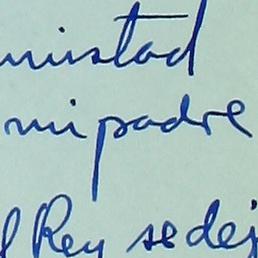 mistad
mi padre
el Rey se dej